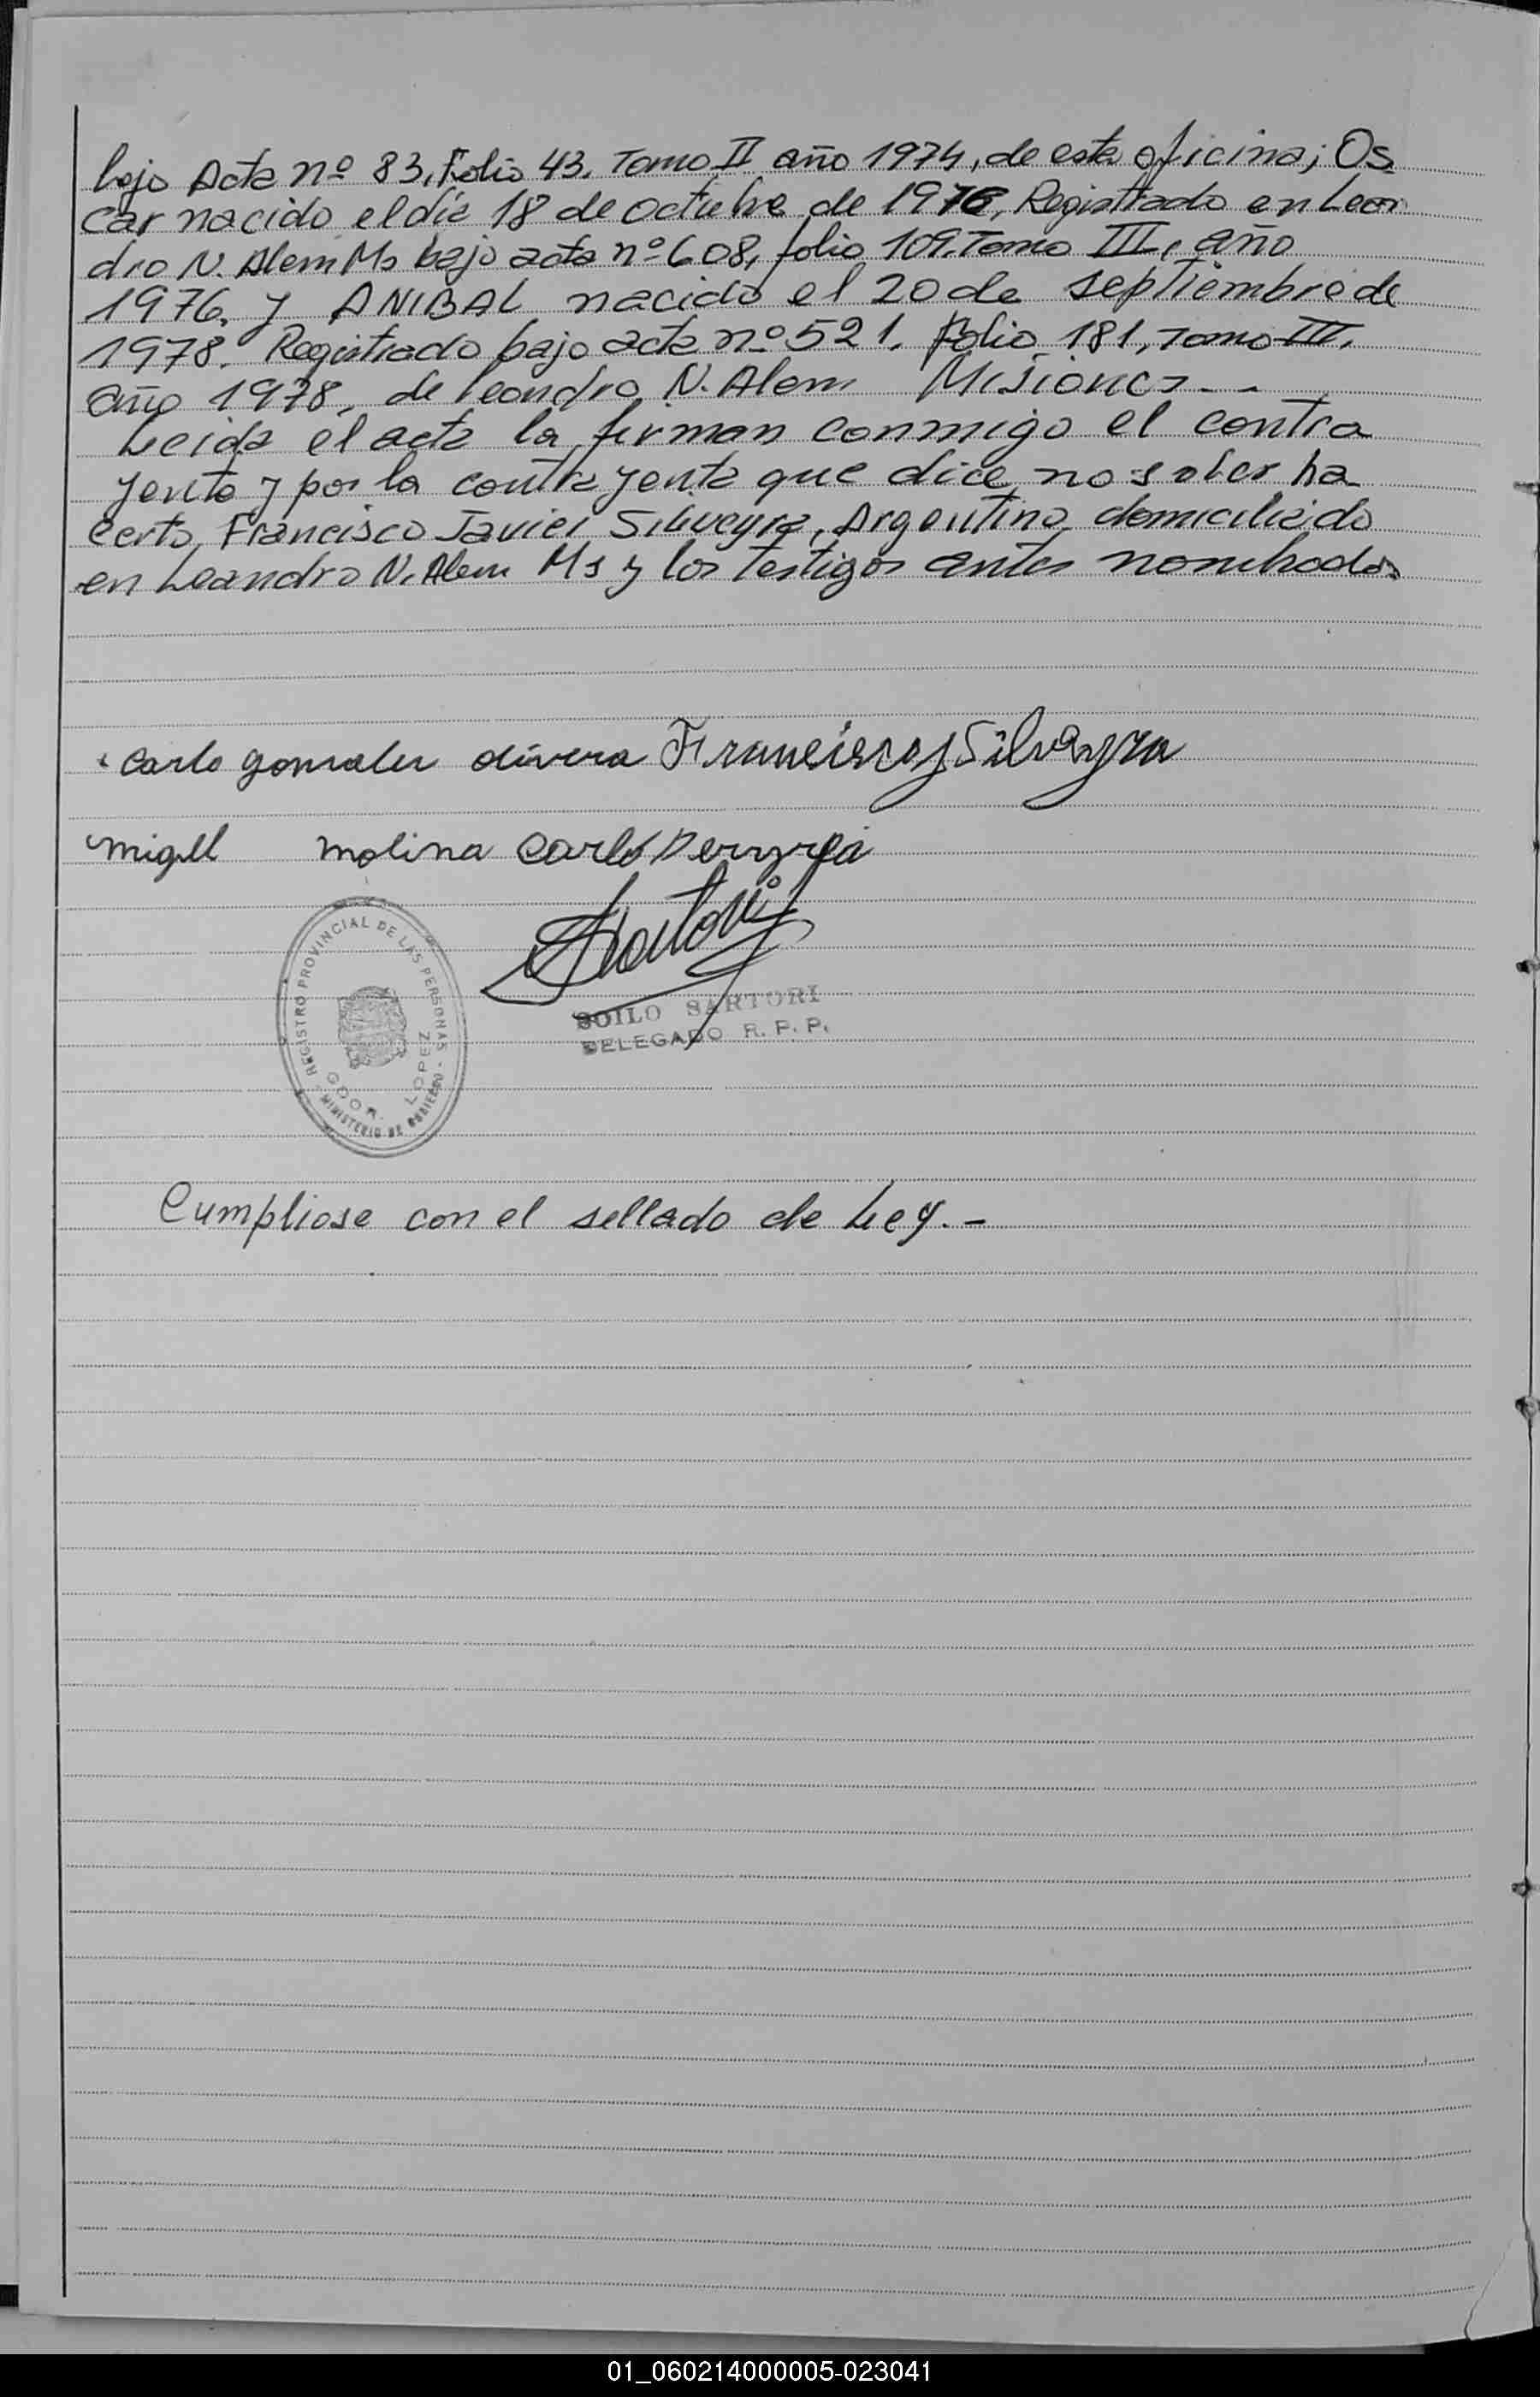 bajo Acta nº 83, Folio 43, Tomo II año 1974, de esta oficina; Os
car nacido el día 18 de octubre de 1976, Registrado en Lean
dro N. Alem Ms bajo acta nº 608, folio 109, Tomo III, año
1976, y ANIBAL nacido el 20 de septiembre de
1978. Registrado bajo acta nº 521, Folio 181, Tomo III,
año 1978, de Leandro N. Alem Misiones - -
Leida el acta la firman conmigo el contra
yente y por la contrayente que dice no saber ha
cerlo, Francisco Javier Silveyra, Argentino domiciliado
en Leandro N. Alem Ms y los testigos antes nombrados
Carlo gonzalez olivera Francisco J Silveyra
migel molina Carlo Pereyra
REGISTRO PROVINCIAL DE LAS PERSONAS - MINISTERIO DE GOBIERNO -
GDOR. LOPEZ
SOILO SARTORI
DELEGADO R. P. P.
Cumpliose con el sellado de Ley. -
01_060214000005-023041